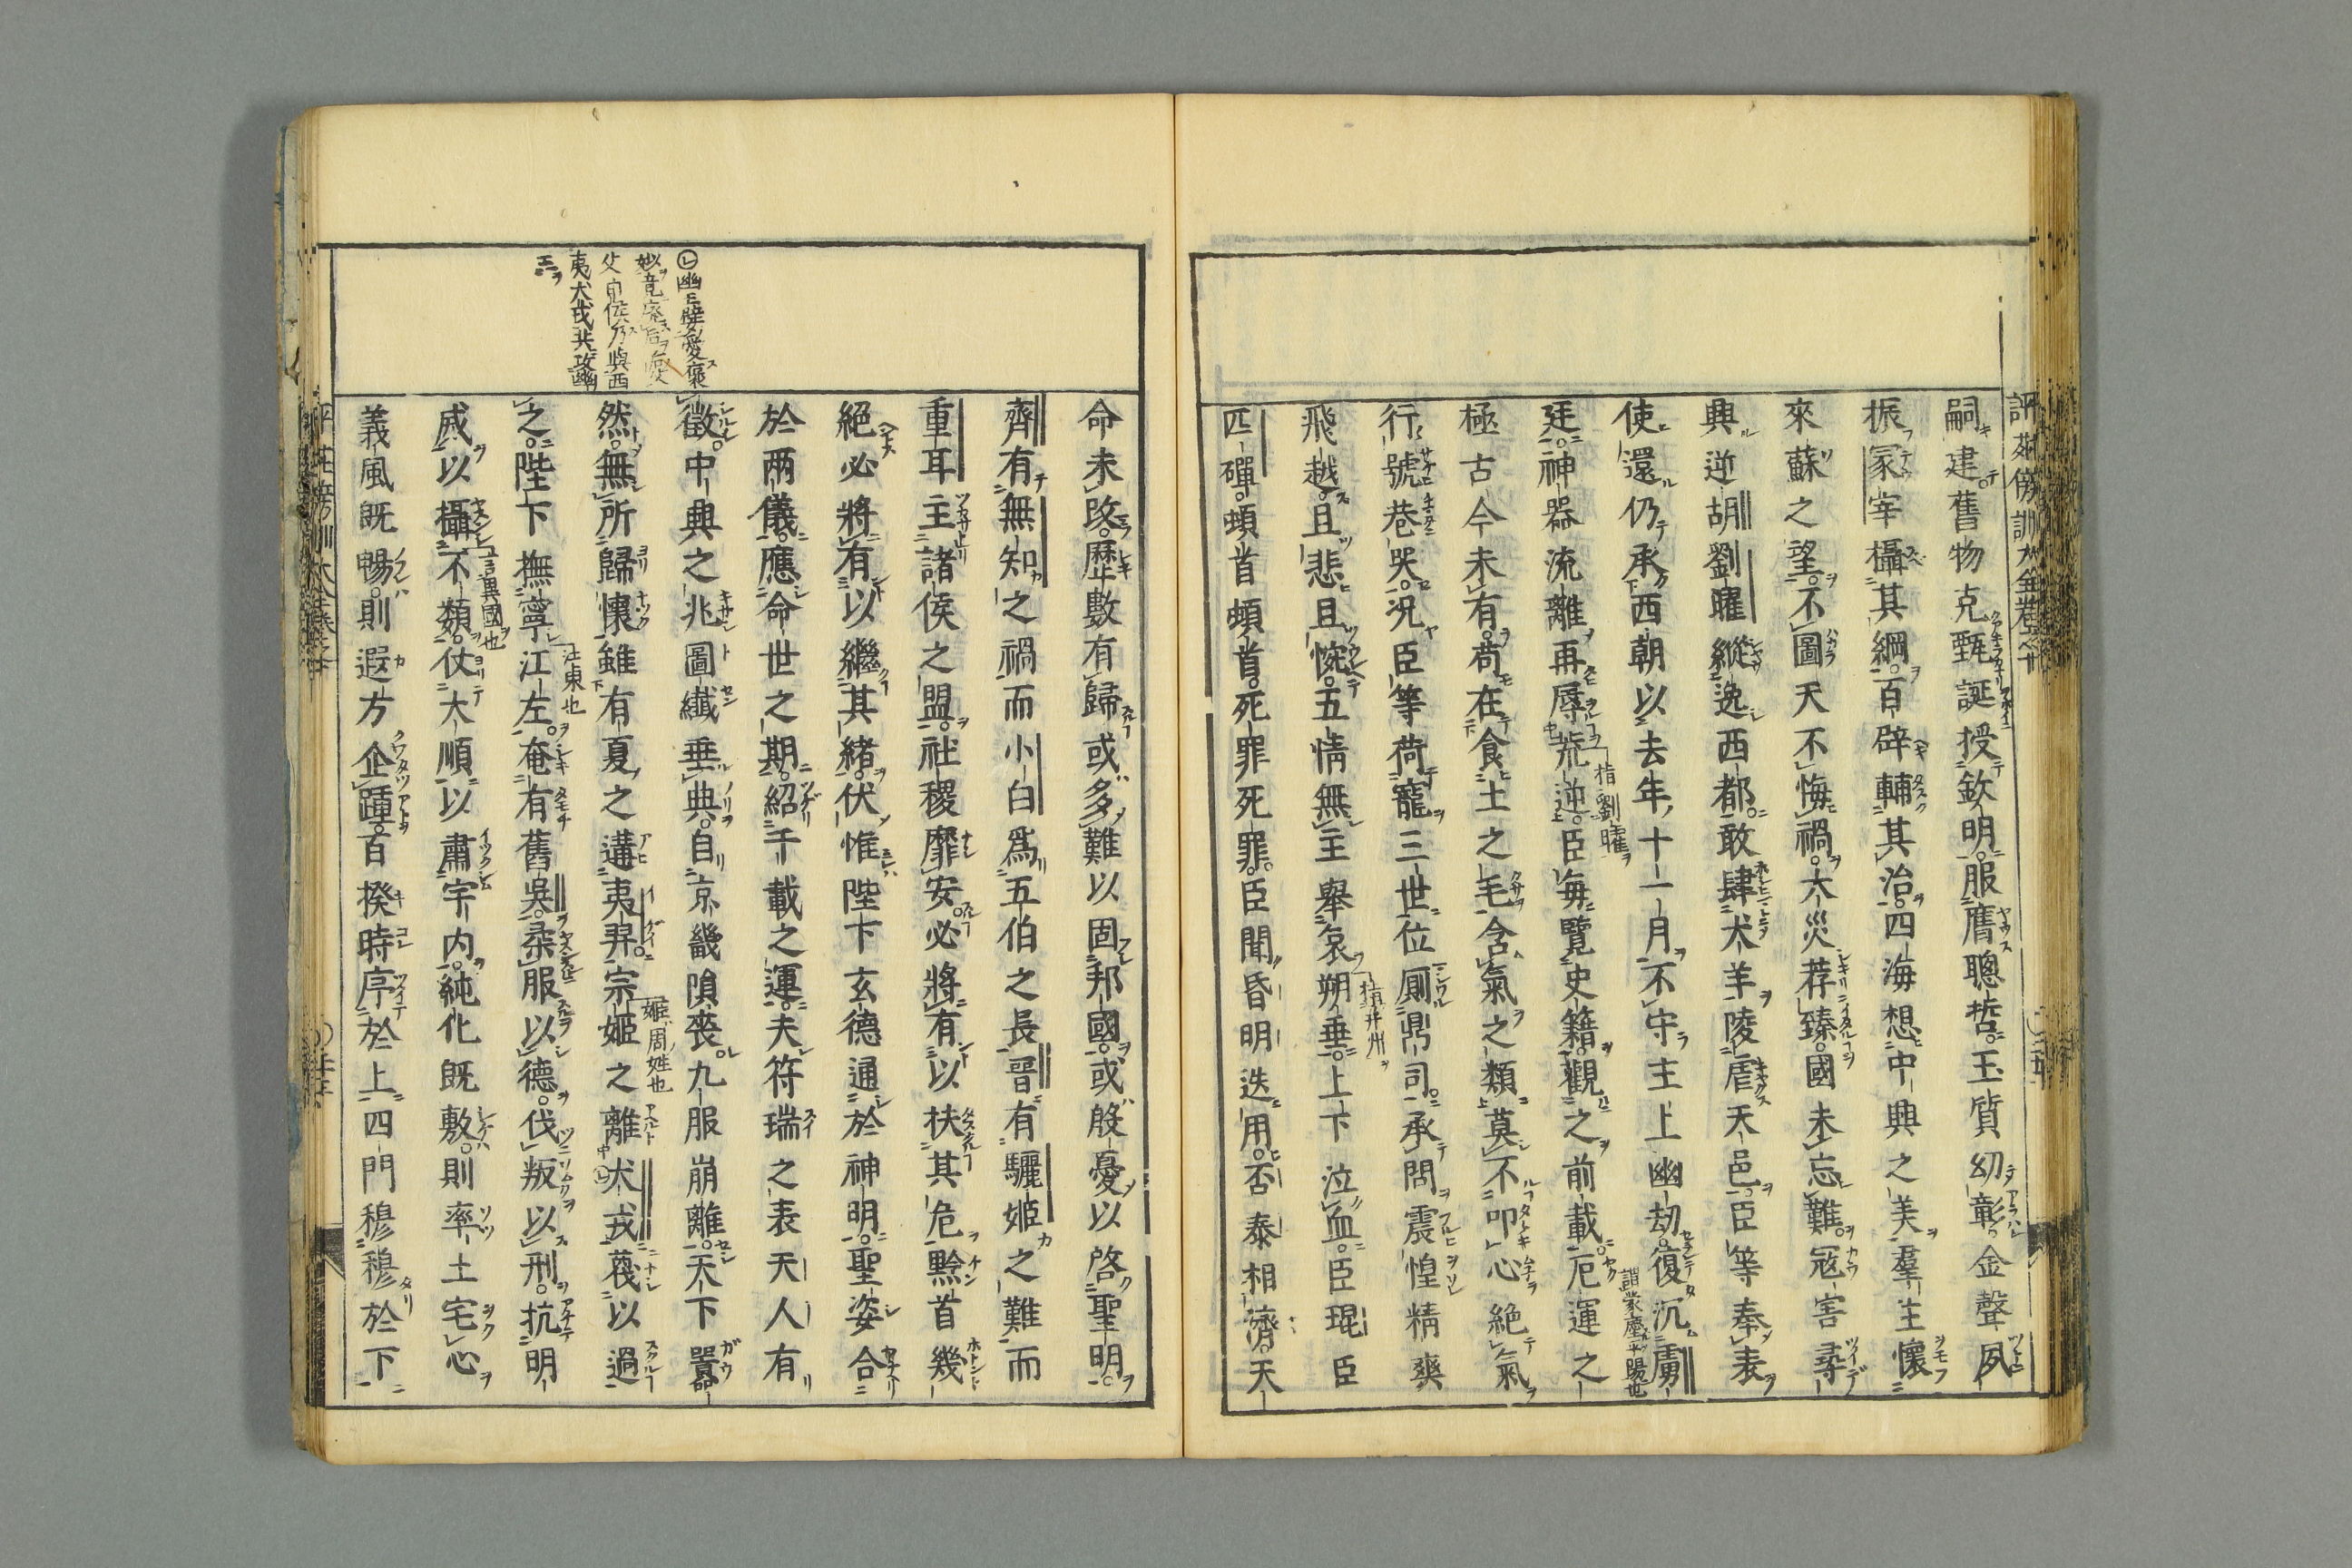 嗣建舊物克甄誕授欽明服膺聰哲玉質幼彰金聲夙
振冢宰攝其綱百辟輔其治四海想中興之美羣生懷
來蘇之望不圖天不悔禍大災荐臻國未忘難寇害尋
興逆胡劉曜縱逸西都敢肆犬羊陵虐天邑臣等奉表
使還仍承西朝以去年十一月不守主上幽劫復沉虜
謂蒙塵平陽也
廷神器流離再辱荒逆臣每覽史籍觀之前載厄運之
指劉曜
極古今未有苟在食土之毛含氣之類莫不叩心絶氣
行號巷哭况臣等荷寵三世位厠鼎司承問震惶精爽
飛越且悲且惋五情無主舉哀朔垂上下泣血臣琨臣
指并州
匹磾頓首頓首死罪死罪臣聞昏明迭用否泰相濟天
命未改歷數有歸或多難以固邦國或殷憂以啓聖明
齊有無知之禍而小白爲五伯之長晉有驪姬之難而
重耳主諸侯之盟社稷靡安必將有以扶其危黔首幾
絶必將有以繼其緒伏惟陛下玄德通於神明聖姿合
於兩儀應命世之期紹千載之運夫符瑞之表天人有
徵中興之兆圖讖垂典自京畿隕喪九服崩離天下囂
然無所歸懷雖有夏之遘夷羿宗姬之離犬戎蔑以過
姬周姓也
之陛下撫寧江左奄有舊吳柔服以德伐叛以刑抗明
江東也
威以攝不類仗大順以肅宇内純化既敷則率土宅心
言異國也
義風既暢則遐方企踵百揆時序於上四門穆穆於下
夷犬戎共攻幽